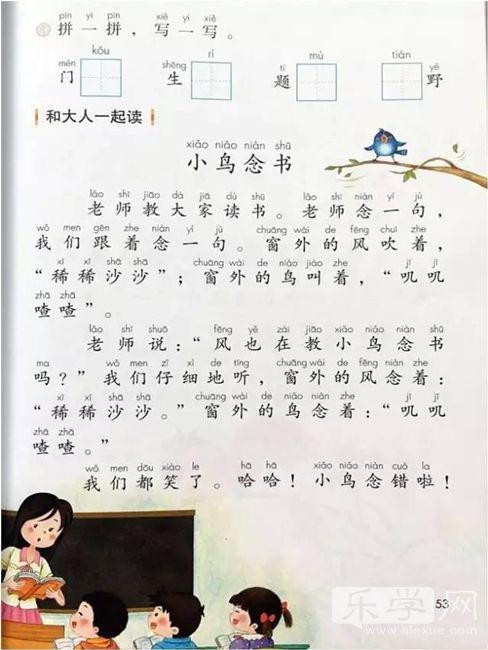 pīn yi pīn xiě yi xiě
拼一拼，写一写。
kǒu rì mù tián
mén shēng tí yě
门 生 题 野
和大人一起读
xiǎo niǎo niàn shū
小鸟念书
lǎo shī jiāo dà jiā dú shū lǎo shī niàn yí jù
老师教大家读书。老师念一句，
wǒ men gēn zhe niàn yí jù chuāng wài de fēng chuī zhe
我们跟着念一句。窗外的风吹着，
xī xī shā shā chuāng wài de niǎo jiào zhe jī jī
“稀稀沙沙”；窗外的鸟叫着，“叽叽
zhā zhā
喳喳”。
lǎo shī shuō fēng yě zài jiāo xiǎo niǎo niàn shū
老师说：“风也在教小鸟念书
ma wǒ men zǐ xì de tīng chuāng wài de fēng niàn zhe
吗？”我们仔细地听，窗外的风念着：
xī xī shā shā chuāng wài de niǎo niàn zhe jī jī
“稀稀沙沙。”窗外的鸟念着：“叽叽
zhā zhā
喳喳。”
wǒ men dōu xiào le hā hā xiǎo niǎo niàn cuò la
我们都笑了。哈哈！小鸟念错啦！
53
乐学网
www.alexue.com